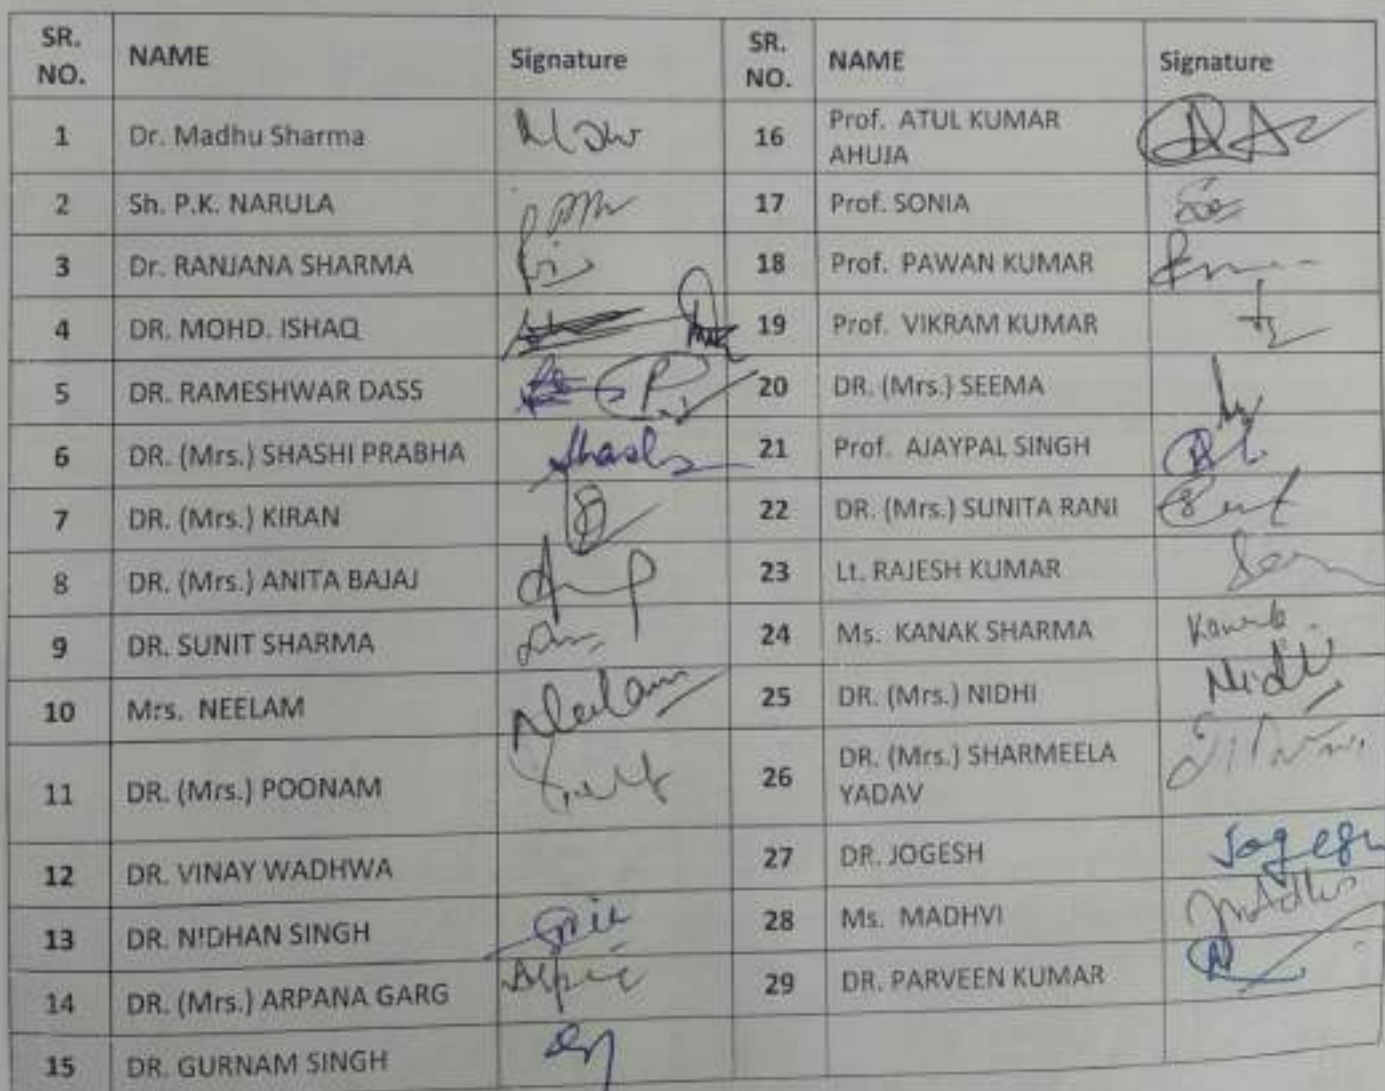 SR. NO. NAME Signature SR. NO. NAME Signature
1 Dr. Madhu Sharma 16 Prof. ATUL KUMAR AHUJA
2 Sh. P.K. NARULA 17 Prof. SONIA
3 Dr. RANJANA SHARMA 18 Prof. PAWAN KUMAR
4 DR. MOHD. ISHAQ 19 Prof. VIKRAM KUMAR
5 DR. RAMESHWAR DASS 20 DR. (Mrs.) SEEMA
6 DR. (Mrs.) SHASHI PRABHA Shashi 21 Prof. AJAYPAL SINGH
7 DR. (Mrs.) KIRAN 22 DR. (Mrs.) SUNITA RANI
8 DR. (Mrs.) ANITA BAJAJ 23 Lt. RAJESH KUMAR
9 DR. SUNIT SHARMA 24 Ms. KANAK SHARMA Kanak
10 Mrs. NEELAM Neelam 25 DR. (Mrs.) NIDHI Nidhi
11 DR. (Mrs.) POONAM 26 DR. (Mrs.) SHARMEELA YADAV
12 DR. VINAY WADHWA 27 DR. JOGESH Jogesh
13 DR. NIDHAN SINGH 28 Ms. MADHVI Madhvi
14 DR. (Mrs.) ARPANA GARG 29 DR. PARVEEN KUMAR
15 DR. GURNAM SINGH